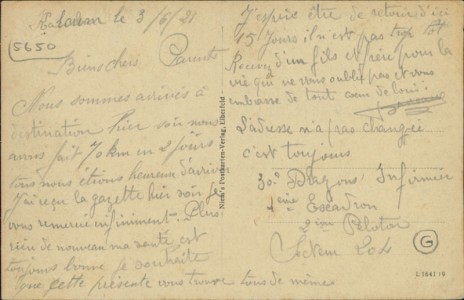 le 3/6/21
5650
Bien chers Parents
Nous sommes arrivés à
destination hier soir nous
avons fait 70 km en 2 jours
tous nous étions heureux d'arriver
J'ai reçu la gazette hier soir je
vous remercie infiniment. Plus
rien de nouveau ma santé est
toujours bonne je souhaite
que cette présente vous trouve tous de même
J'espère être de retour d'ici
15 jours il n'est pas trop tôt
Recevez d'un fils et pour la
vie qui ne vous oublie pas et vous
embrasse de tout coeur de loin!
L'adresse n'a pas changée
c'est toujours
30e Dragons Infirmier
4ème Escadron
2ème Peloton
Secteur 204
G
Niem's Postkarten-Verlag, Elberfeld
L 1641/9